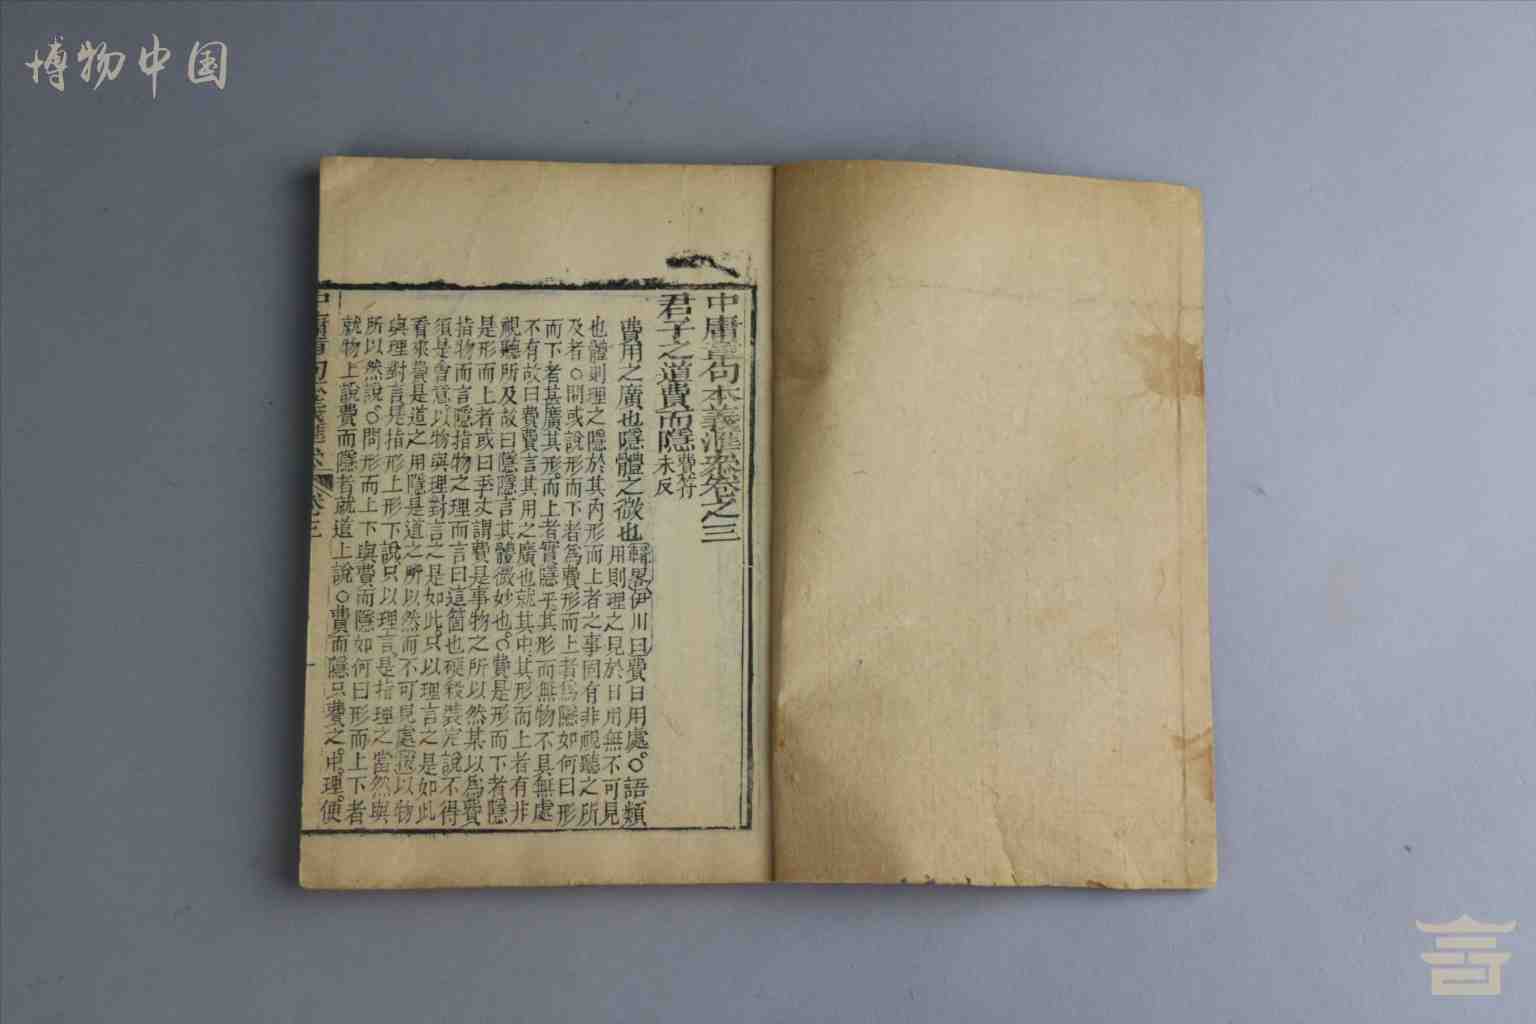 博物中国
中庸章句本義滙叅卷之三
君子之道費而隱費符未反
費用之廣也隱體之微也輯畧伊川曰費日用處○語類
用則理之見於日用無不可見
也體則理之隱於其內形而上者之事固有非視聽之所
及者○問或說形而下者為費形而上者為隱如何曰形
而下者甚廣其形而上者實隱乎其形而無物不具無處
不有故曰費費言其用之廣也就其中其形而上者有非
視聽所及故曰隱隱言其體微妙也○費是形而下者隱
是形而上者或曰季丈謂費是事物之所以然某以為費
指物而言隱指物之理而言曰這箇也硬殺裝定說不得
須是會意以物與理對言之是如此只以理言之是如此
看來費是道之用隱是道之所以然而不可見處
與理對言是指形上形下說只以理言是指理之當然與
所以然說○問形而上下與費而隱如何曰形而上下者
就物上說費而隱者就道上說○費而隱只費之中理便